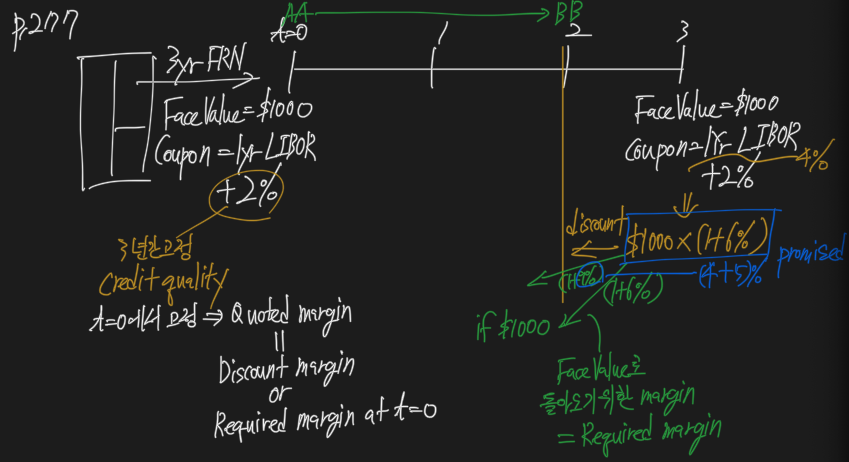 p.277
AA → BB
t=0 1 2 3
3yr FRN
Face Value = $1000
Coupon = 1yr LIBOR
+2%
3년간 고정
Credit quality
t=0에서 고정 ⇒ Quoted margin
=
Discount margin
or
Required margin at t=0
Face Value = $1000
Coupon = 1yr LIBOR
+2%
4%
discount
$1000 × (1+6%)
promised
(4+5)%
(1+6%)
if $1000
Face Value로
돌아오기 위한 margin
= Required margin